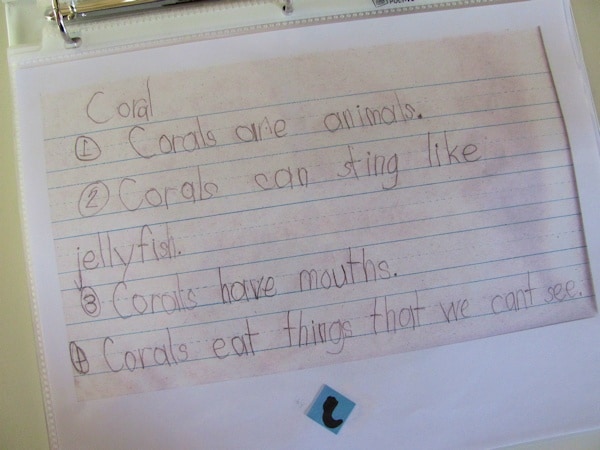 Coral
① Corals are animals.
② Corals can sting like
jellyfish.
③ Corals have mouths.
④ Corals eat things that we cant see.
C